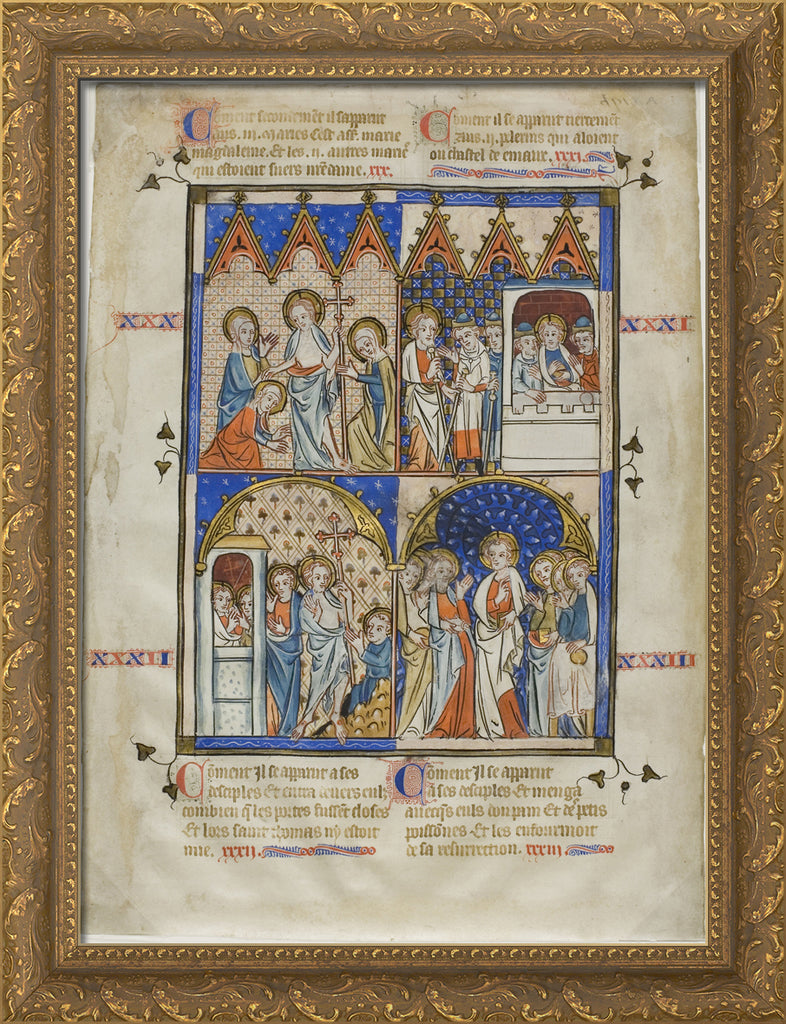 Coment secondemēt il sapparut
aus .iii. maries cest ass. marie
magdaleine. Et les .ii. autres marie
qui estoient suers nr̄edame. xxx.
Coment il se apparut tiercemēt
aus .ii. pelerins qui aloient
ou chastel de emaux. xxxi.
XXX
XXXI
XXXII
XXXIII
Cōment Jl se apparut a ses
desciples Et entra leuers euls
combien q̄ les portes fussēt closes
Et lors saint thomas ny estoit
mie. xxxii.
Cōment Jl se apparut
a ses desciples Et menga
auecq̄s euls don pain Et de petis
poissōnes Et les enfourmoit
de sa resurrection. xxxiii.